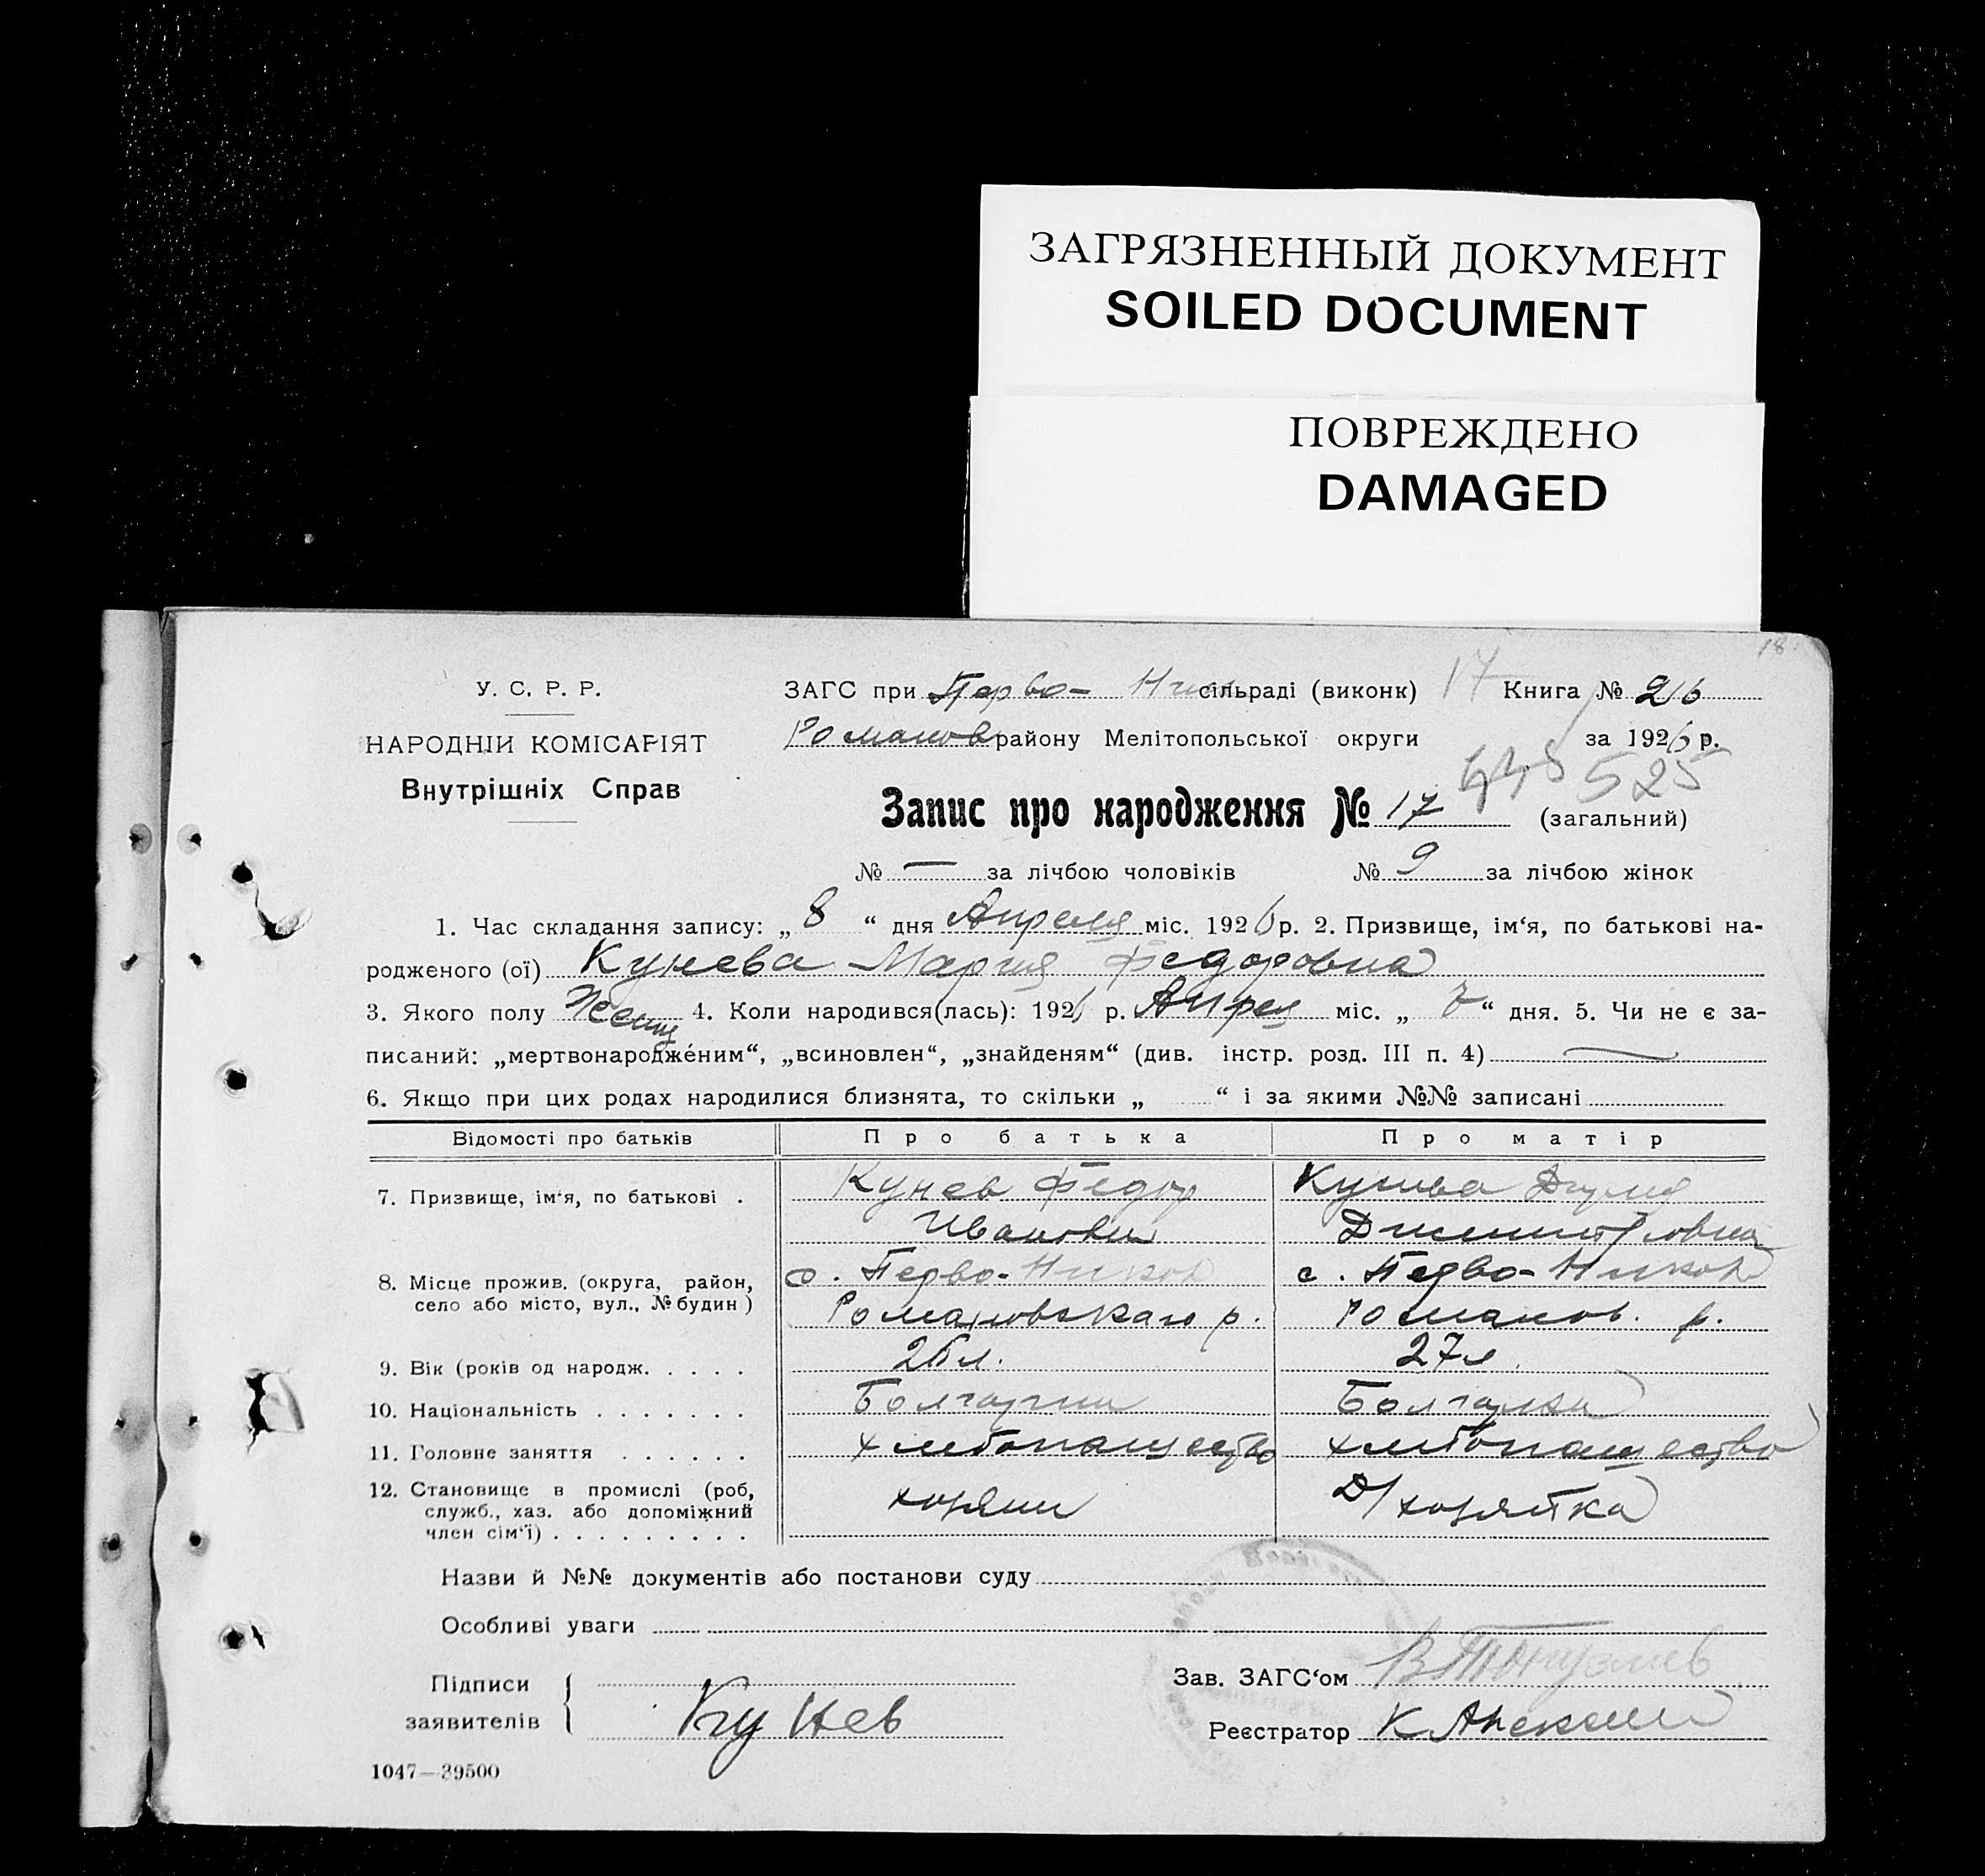 ЗАГРЯЗНЕННЫЙ ДОКУМЕНТ
SOILED DOCUMENT
ПОВРЕЖДЕНО
DAMAGED
18
У. С. Р. Р.
НАРОДНІЙ КОМІСАРІЯТ
Внутрішніх Справ
ЗАГС при Перво- сільраді (виконк) 17 Книга № 2/6
Романов району Мелітопольської округи за 1926 р.
525
Запис про народження № 17 (загальний)
№ — за лічбою чоловіків № 9 за лічбою жінок
1. Час складання запису: „ 8 “ дня Апреля міс. 1926 р. 2. Призвище, ім‘я, по батькові на-
родженого (ої) Кунева Мария Федоровна
3. Якого полу Женщ 4. Коли народився(лась): 1926 р. Апрел міс. „ 7 “ дня. 5. Чи не є за-
писаний: „мертвонародже́ним“, „всиновлен“, „знайденям“ (див. інстр. розд. III п. 4) —
6. Якщо при цих родах народилися близнята, то скільки „ “ і за якими №№ записані
Відомості про батьків Про батька Про матір
7. Призвище, ім‘я, по батькові . Кунев Федор Кунева
Иванович Дмитровна
8. Місце прожив. (округа, район, село або місто, вул., № будин) с. Перво-Никол с. Перво-Никол
Романовскаго р. Романов. р.
9. Вік (років од народж. . . . . 26 л. 27 л.
10. Національність . . . . . . . Болгарин Болгарка
11. Головне заняття . . . . . . хлебопашество хлебопашество
12. Становище в промислі (роб, служб., хаз. або допоміжний член сім‘ї) . . . . . . . . . хозяин Д/хозяйка
Назви й №№ документів або постанови суду
Особливі уваги
Підписи заявителів Кунев
Зав. ЗАГС‘ом
Реєстратор К
1047—39500